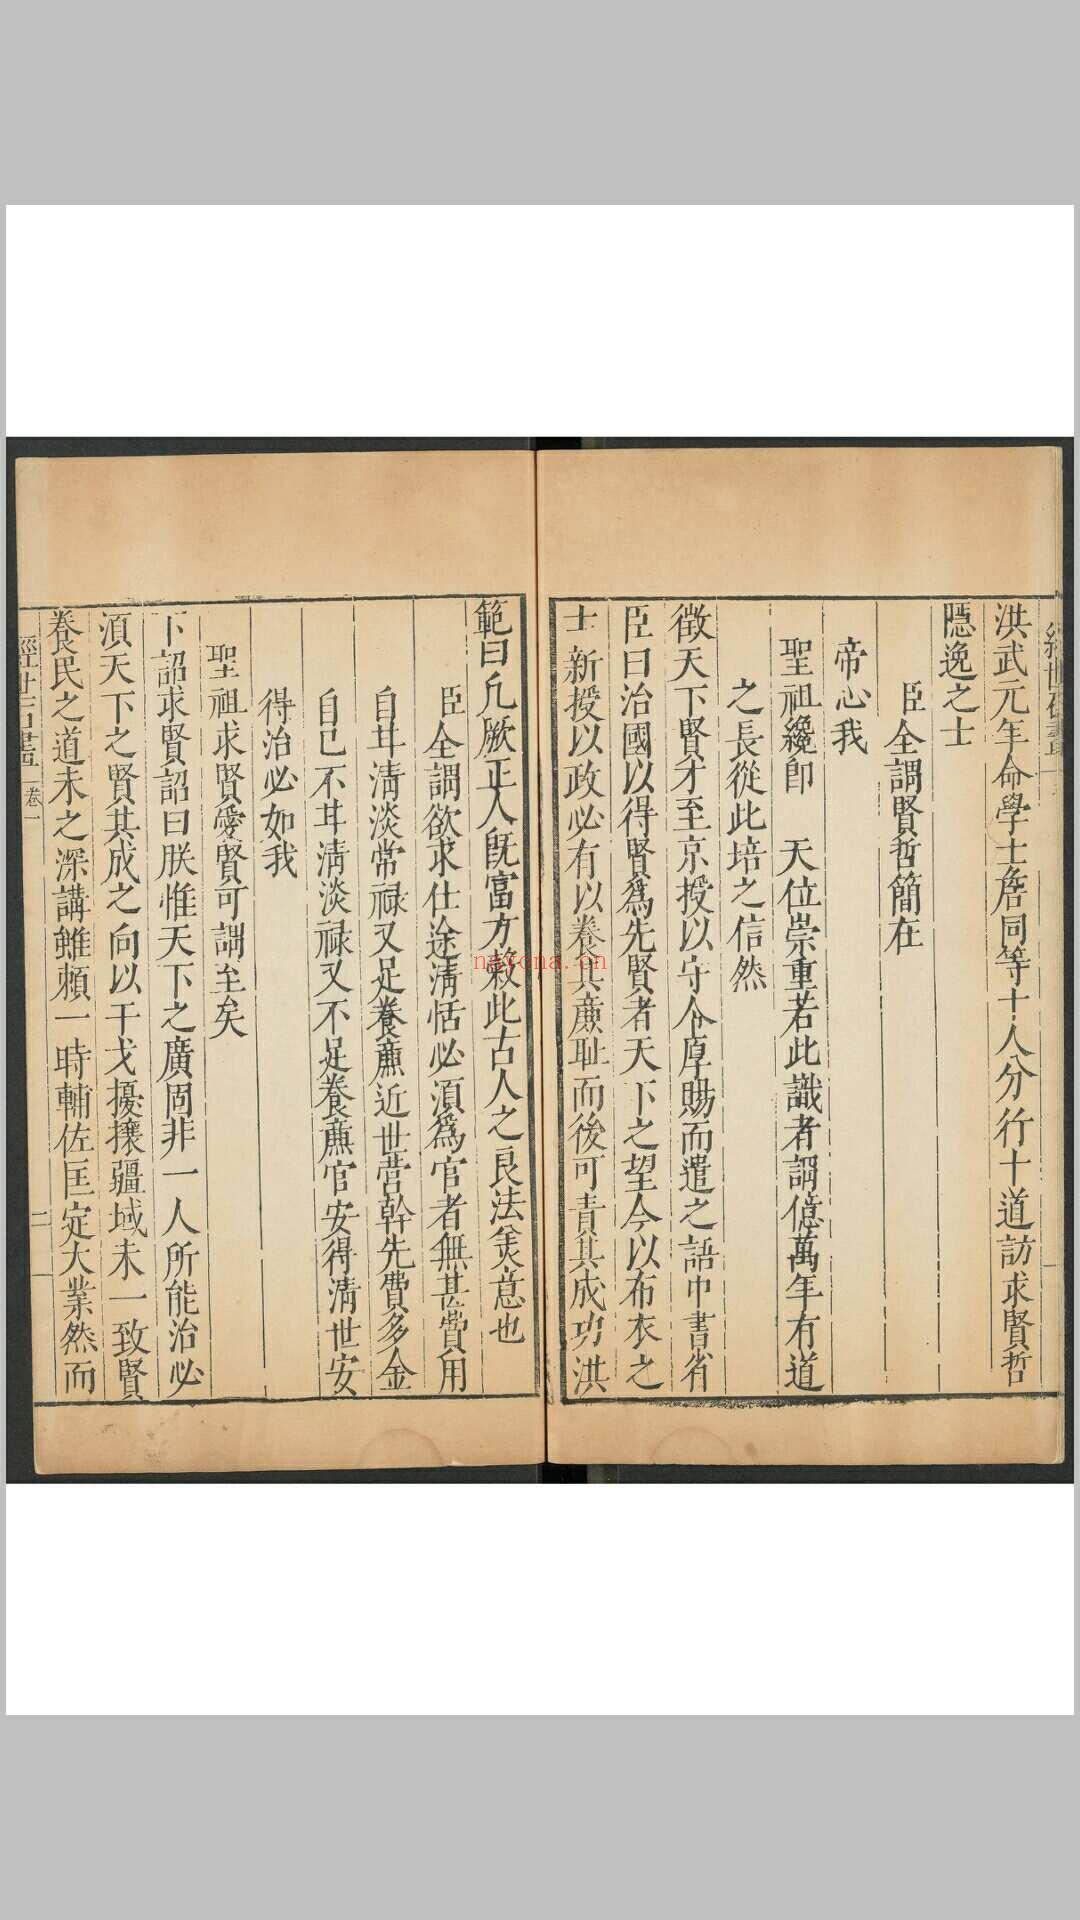 洪武元年命學士詹同等十人分行十道訪求賢哲
隱逸之士
臣全謂賢哲簡在
帝心我
聖祖纔卽 天位崇重若此識者謂億萬年有道
之長從此培之信然
徵天下賢才至京授以守令厚賜而遣之語中書省
臣曰治國以得賢爲先賢者天下之望今以布衣之
士新授以政必有以養其亷耻而後可責其成功洪
範曰凡厥正人旣富方榖此古人之良法美意也
臣全謂欲求仕途淸恬必湏爲官者無甚費用
自甘淸淡常禄又足養亷近世營幹先費多金
自己不甘淸淡禄又不足養亷官安得淸世安
得治必如我
聖祖求賢愛賢可謂至矣
下詔求賢詔曰朕惟天下之廣固非一人所能治必
湏天下之賢其成之向以干戈擾攘疆域未一致賢
養民之道未之深講雖頼一時輔佐匡定大業然而
經世石畫 卷一 二
nayona.cn